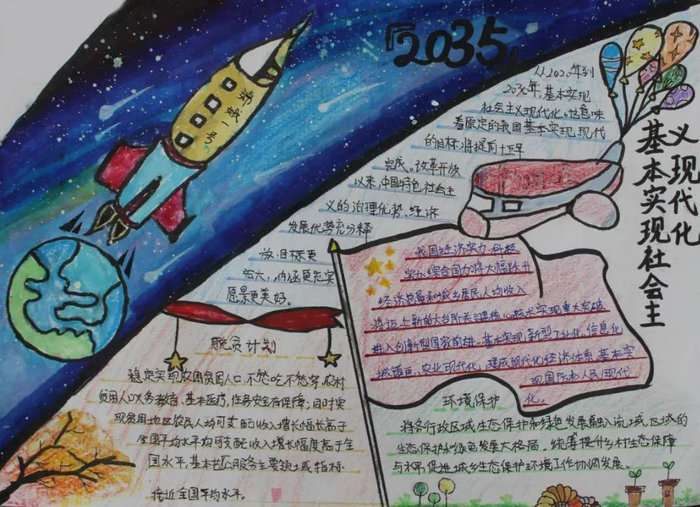 『2035』
从2020年到
2035年,基本实现
社会主义现代化,也意味
着原定的我国基本实现现代
的目标将提前十五年
完成,改革开放
以来,中国特色社会主
义的治理优势,经济
发展优势充分释
放,目标更
宏大,内涵更充实
愿景更美好。
义现代化
基本实现社会主
我国经济实力、科技
实力、综合国力将大幅跃升
经济总量和城乡居民人均收入
将迈上新的大台阶,关键核心技术实现重大突破
进入创新型国家前列。基本实现新型工业化、信息化
城镇化、农业现代化,建成现代化经济体系,基本实
现国防和人民现代
化。
脱贫计划
稳定实现农村贫困人口,不愁吃、不愁穿,农村
贫困人口义务教育,基本医疗,住房安全有保障;同时实
现贫困地区农民人均可支配收入增长幅度高于
全国平均水平均可支配收入增长幅度高于全
国水平,基本公共服务主要领域指标
接近全国平均水平。
环境保护
将各行政区域生态保护和绿色发展融入流域、区域的
生态保护和绿色发展大格局,统筹提升乡村生态保障
与水平,促进城乡生态保护环境工作协同发展。